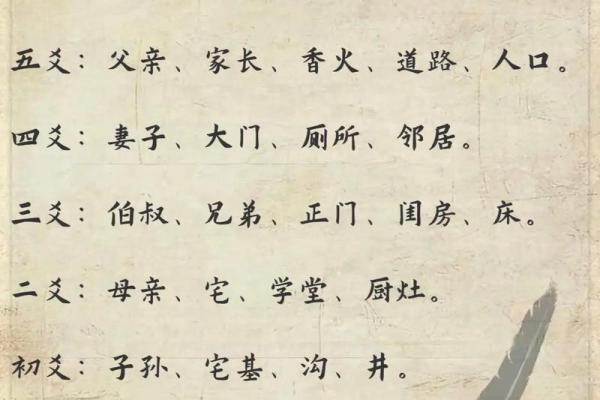 五爻：父亲、家长、香火、道路、人口。
四爻：妻子、大门、厕所、邻居。
三爻：伯叔、兄弟、正门、闺房、床。
二爻：母亲、宅、学堂、厨灶。
初爻：子孙、宅基、沟、井。